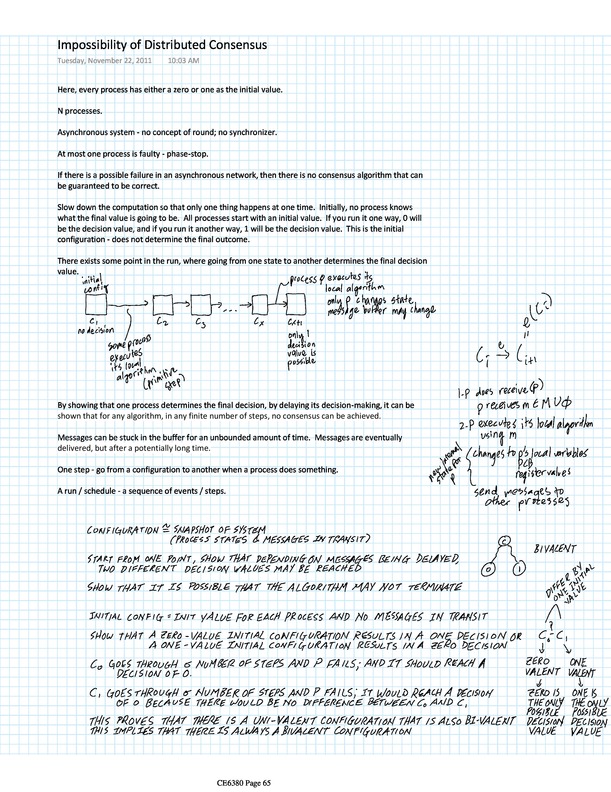 Impossibility of Distributed Consensus
Tuesday, November 22, 2011 10:03 AM
Here, every process has either a zero or one as the initial value.
N processes.
Asynchronous system - no concept of round; no synchronizer.
At most one process is faulty - phase-stop.
If there is a possible failure in an asynchronous network, then there is no consensus algorithm that can
be guaranteed to be correct.
Slow down the computation so that only one thing happens at one time. Initially, no process knows
what the final value is going to be. All processes start with an initial value. If you run it one way, 0 will
be the decision value, and if you run it another way, 1 will be the decision value. This is the initial
configuration - does not determine the final outcome.
There exists some point in the run, where going from one state to another determines the final decision
value.
initial
config
C1
no decision
some process
executes
its local
algorithm
(primitive
step)
C2
C3
...
Cx
Cx+1
only 1
decision
value is
possible
process p executes its
local algorithm
only p changes state,
message buffer may change
e(Ci)
"
Ci e→ Ci+1
1-P does receive(p)
p receives m ∈ M U Φ
2-P executes its local algorithm
using m
new internal
state for
P
changes to p's local variables
PCB
register values
send messages to
other processes
By showing that one process determines the final decision, by delaying its decision-making, it can be
shown that for any algorithm, in any finite number of steps, no consensus can be achieved.
Messages can be stuck in the buffer for an unbounded amount of time. Messages are eventually
delivered, but after a potentially long time.
One step - go from a configuration to another when a process does something.
A run / schedule - a sequence of events / steps.
CONFIGURATION ≅ SNAPSHOT OF SYSTEM
(PROCESS STATES & MESSAGES IN TRANSIT)
START FROM ONE POINT, SHOW THAT DEPENDING ON MESSAGES BEING DELAYED,
TWO DIFFERENT DECISION VALUES MAY BE REACHED
SHOW THAT IT IS POSSIBLE THAT THE ALGORITHM MAY NOT TERMINATE
C
0
1
BIVALENT
INITIAL CONFIG = INIT VALUE FOR EACH PROCESS AND NO MESSAGES IN TRANSIT
SHOW THAT A ZERO-VALUE INITIAL CONFIGURATION RESULTS IN A ONE DECISION OR
A ONE-VALUE INITIAL CONFIGURATION RESULTS IN A ZERO DECISION
C0 GOES THROUGH σ NUMBER OF STEPS AND P FAILS; AND IT SHOULD REACH A
DECISION OF 0.
C1 GOES THROUGH σ NUMBER OF STEPS AND P FAILS; IT WOULD REACH A DECISION
OF 0 BECAUSE THERE WOULD BE NO DIFFERENCE BETWEEN C0 AND C1
THIS PROVES THAT THERE IS A UNI-VALENT CONFIGURATION THAT IS ALSO BI-VALENT
THIS IMPLIES THAT THERE IS ALWAYS A BIVALENT CONFIGURATION
DIFFER BY
ONE INITIAL
VALUE
?
C0-C1
ZERO ONE
VALENT VALENT
ZERO IS ONE IS
THE ONLY THE ONLY
POSSIBLE POSSIBLE
DECISION DECISION
VALUE VALUE
CE6380 Page 65